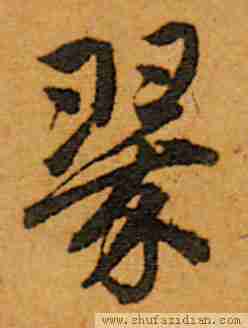 翠
www.shufazidian.com